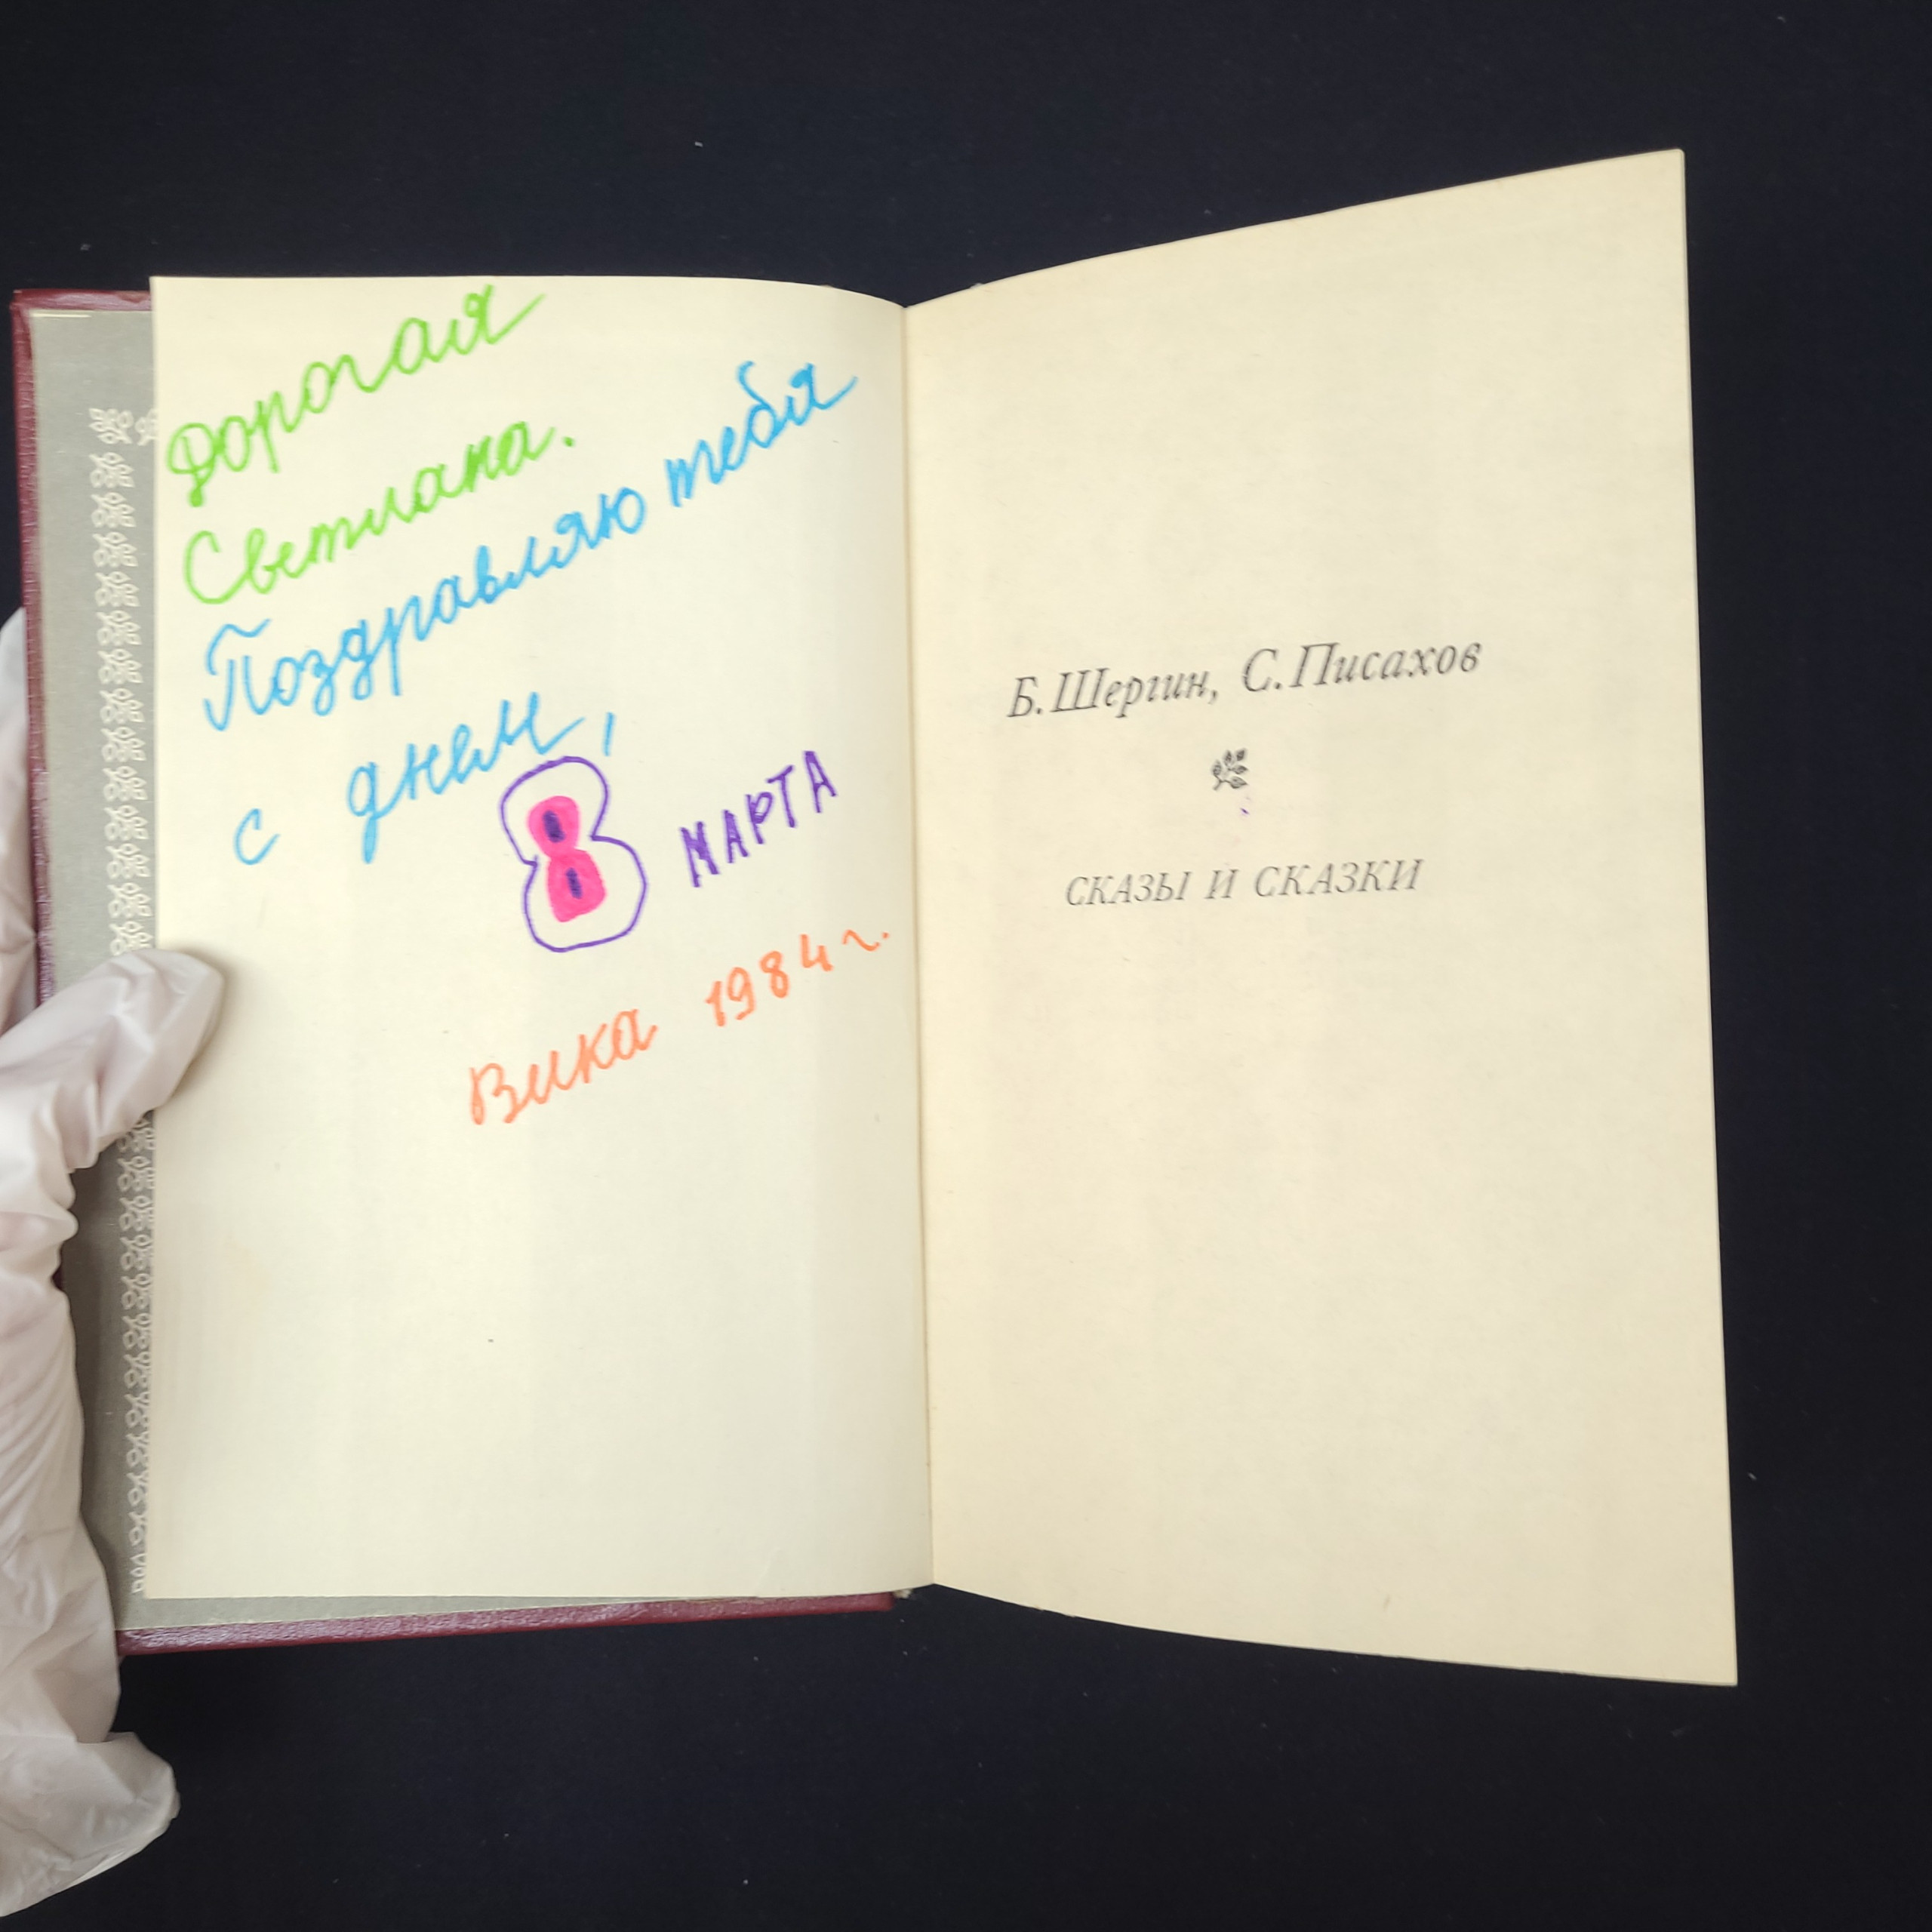 Дорогая
Светлана.
Поздравляю тебя
с днем,
8 МАРТА
Вика 1984 г.
Б. Шергин, С. Писахов
СКАЗЫ И СКАЗКИ